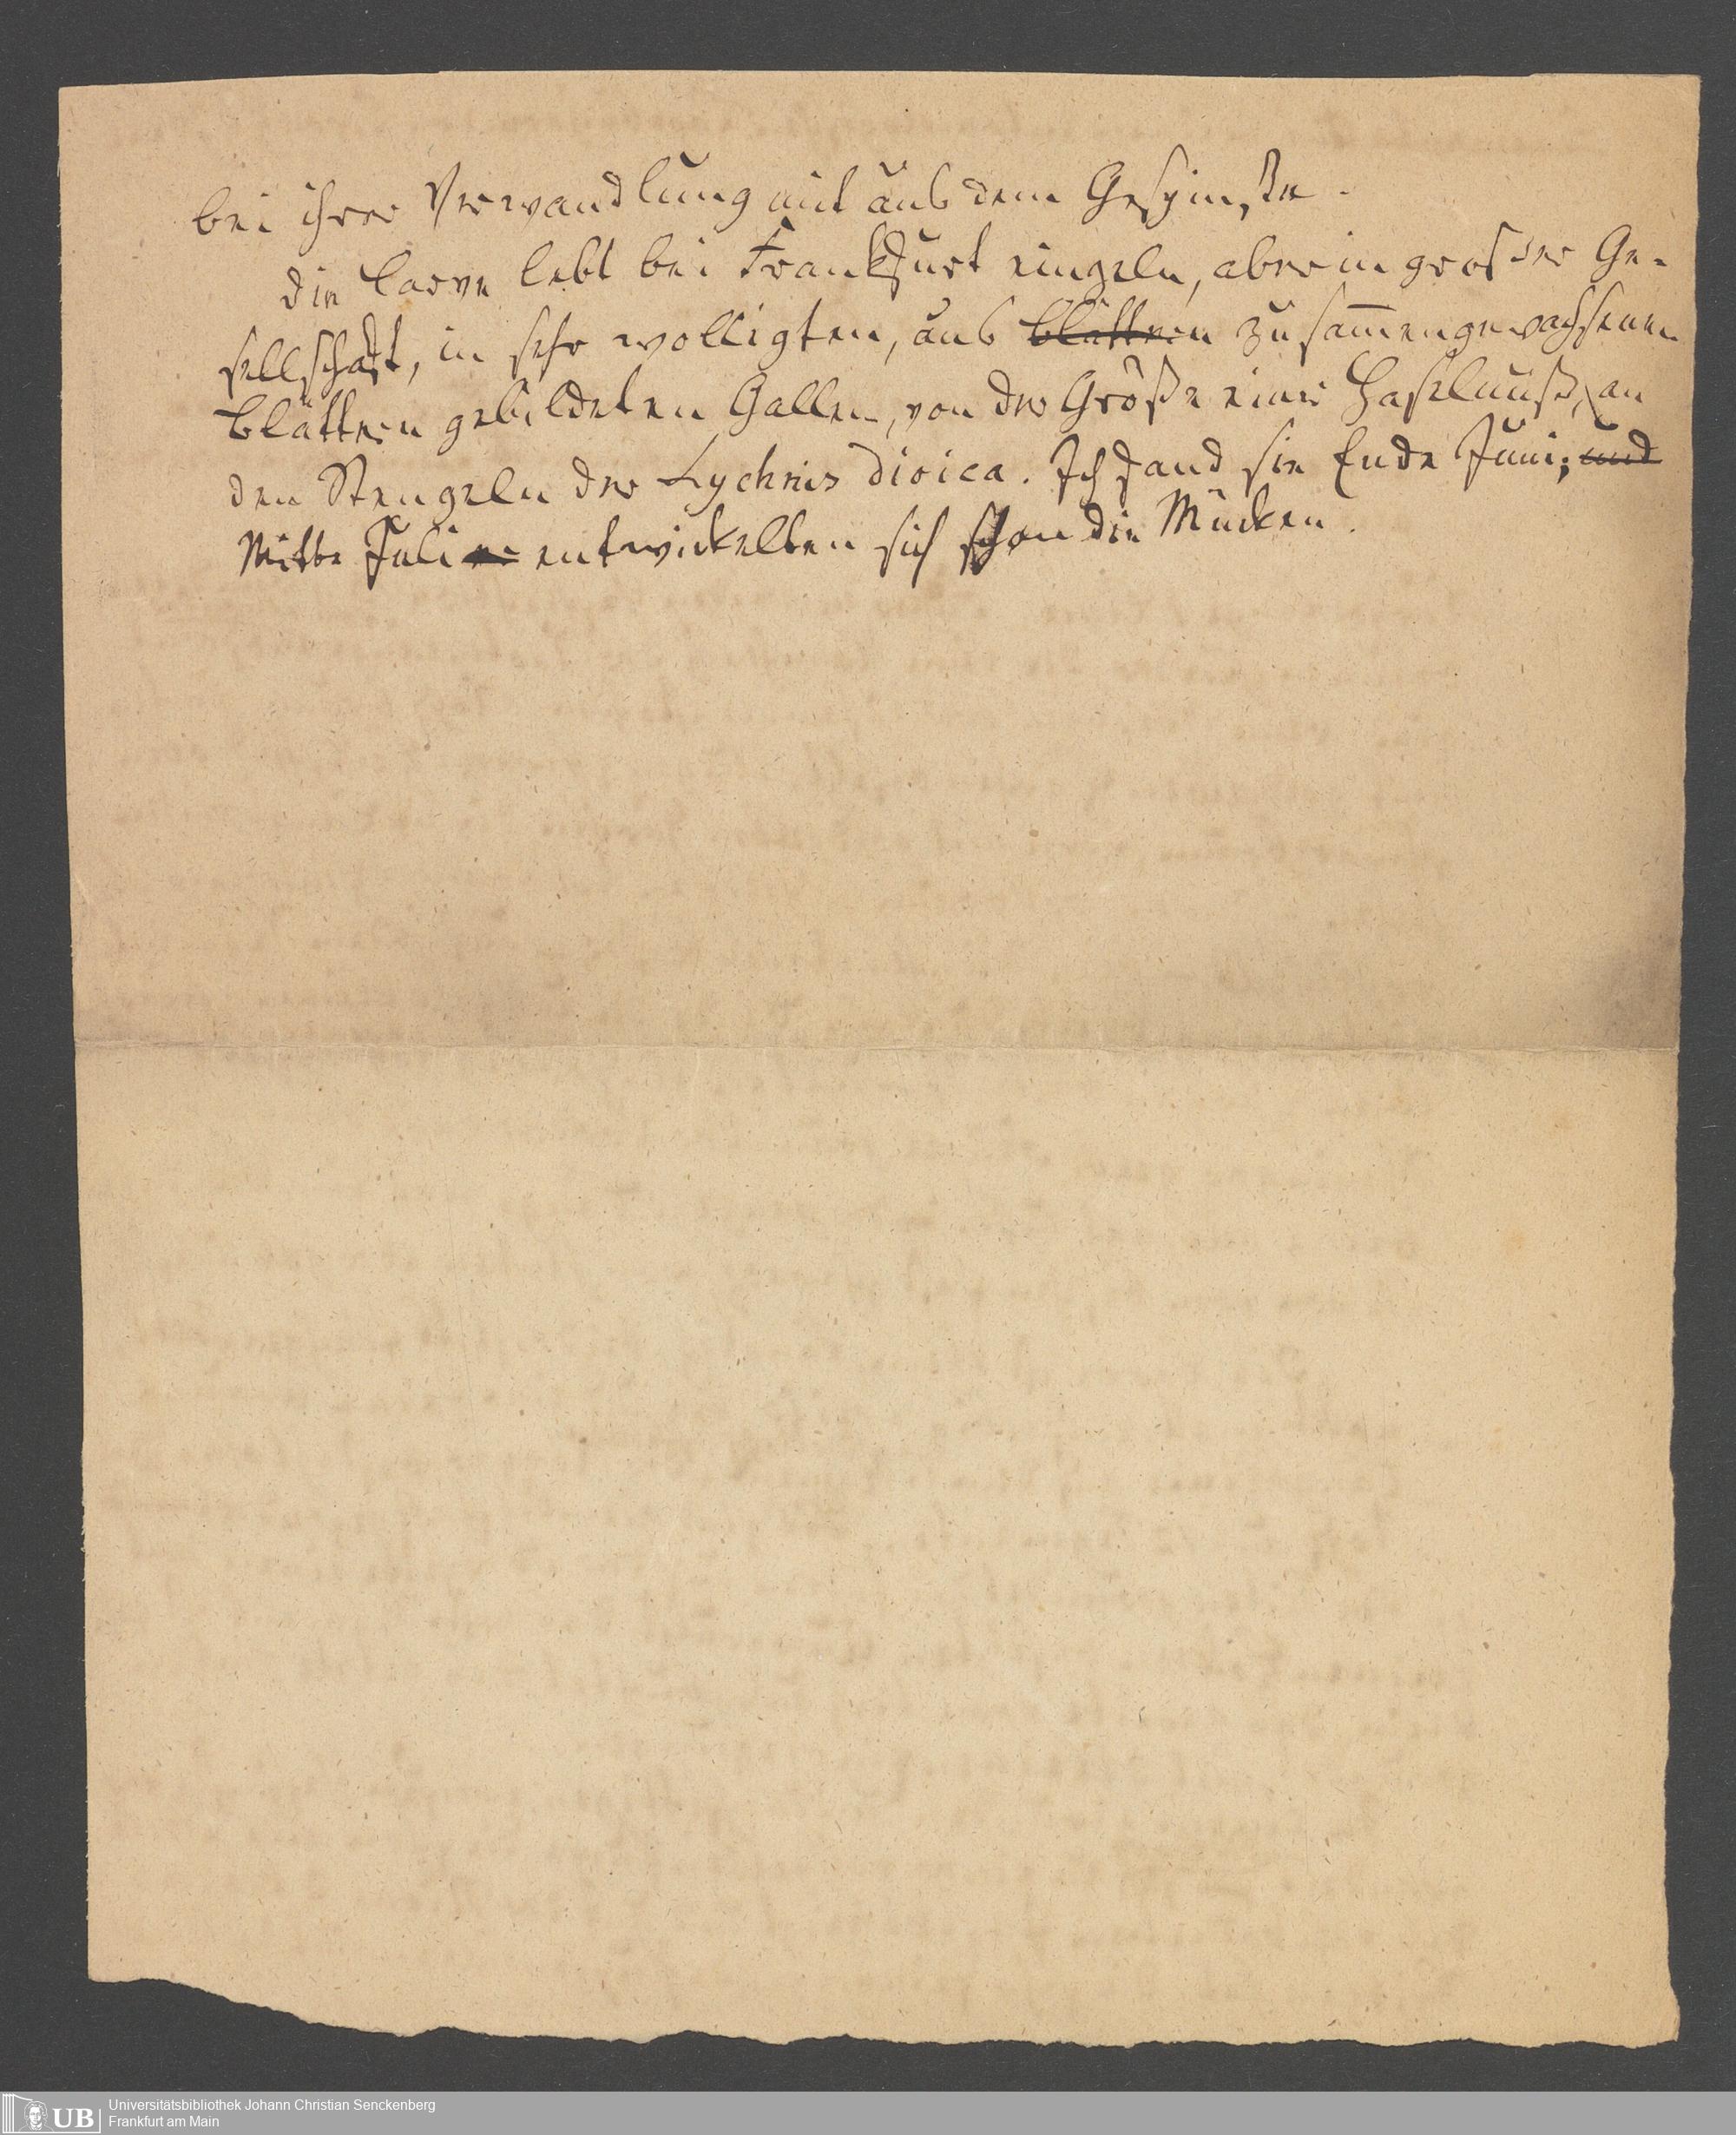 bei ihrer Verwandlung mit aus dem Gespinnste.
Die Larve lebt bei Frankfurt einzeln, aber in großer Ge-
sellschaft, in sehr wolligten, aus Blättern zusam̄engewachsenen
Blättern gebildeten Gallen, von der Größe einer Haselnuß, an
den Stengeln der Lychnis dioica. Ich fand sie Ende Juni; und
Mitte Juli entwickelten sich schon die Mücken.
UB
Universitätsbibliothek Johann Christian Senckenberg
Frankfurt am Main